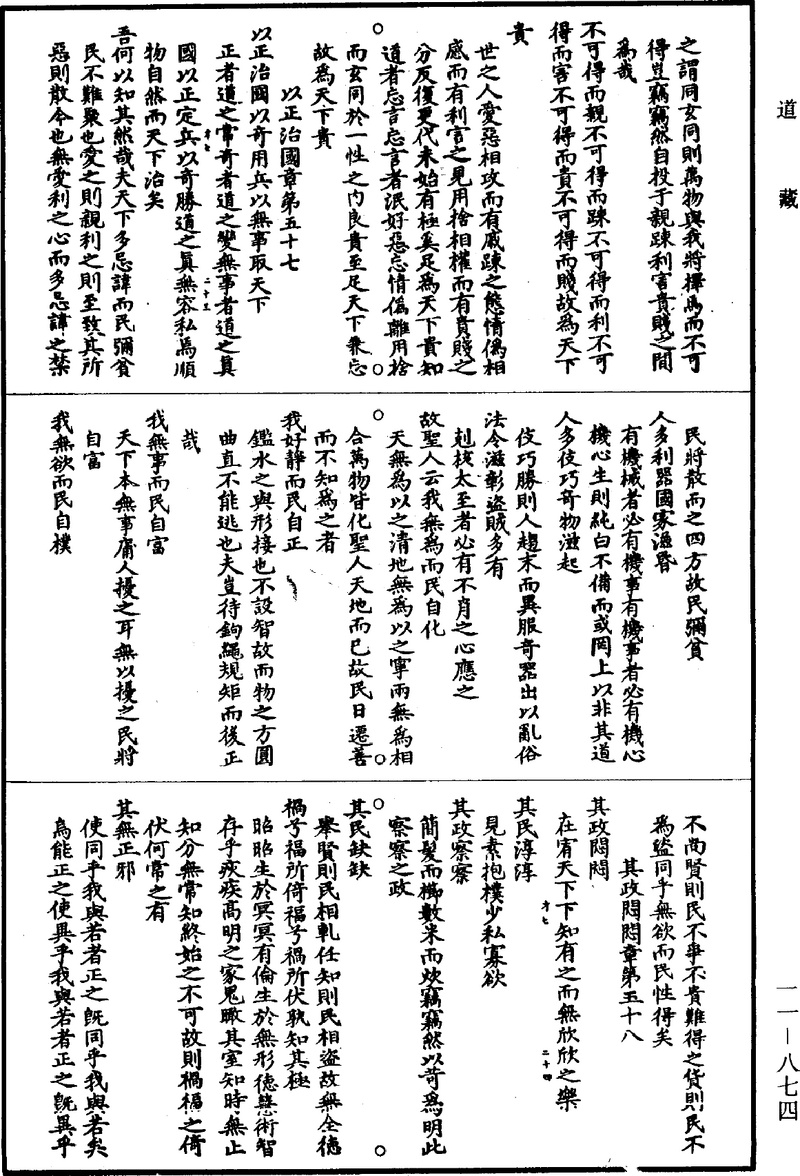 道藏
之謂同玄同則萬物與我將擇焉而不可
得豈竊竊然自投于親踈利害貴賤之間
為哉
不可得而親不可得而踈不可得而利不可
得而害不可得而貴不可得而賤故為天下
貴
世之人愛惡相攻而有戚踈之態情偽相
感而有利害之見用捨相權而有貴賤之
分反復更代未始有極奚足為天下貴知
道者忘言忘言者泯好惡忘情偽離用捨
而玄同於一性之內良貴至足天下兼忘
故為天下貴
以正治國章第五十七
以正治國以奇用兵以無事取天下
正者道之常奇者道之變無事者道之真
國以正定兵以奇勝道之真無容私焉順
才七
二十三
物自然而天下治矣
吾何以知其然哉夫天下多忌諱而民彌貧
民不難聚也愛之則親利之則至致其所
惡則散今也無愛利之心而多忌諱之禁
民將散而之四方故民彌貧
人多利器國家滋昬
有機械者必有機事有機事者必有機心
機心生則純白不備而或罔上以非其道
人多伎巧奇物滋起
伎巧勝則人趨末而異服奇器出以亂俗
法令滋彰盜賊多有
剋核太至者必有不肖之心應之
故聖人云我無為而民自化
天無為以之清地無為以之寧兩無為相
合萬物皆化聖人天地而已故民日遷善
而不知為之者
我好靜而民自正
鑑水之與形接也不設智故而物之方圓
曲直不能逃也夫豈待鉤繩規矩而後正
哉
我無事而民自富
天下本無事庸人擾之耳無以擾之民將
自富
我無欲而民自樸
不尚賢則民不爭不貴難得之貨則民不
為盜同乎無欲而民性得矣
其政悶悶章第五十八
其政悶悶
在宥天下下知有之而無欣欣之樂
才七
二十四
其民淳淳
見素抱樸少私寡欲
其政察察
簡髮而櫛數米而炊竊竊然以苛為明此
察察之政
其民缺缺
舉賢則民相軋任知則民相盜故無全德
禍兮福所倚福兮禍所伏孰知其極
昭昭生於冥冥有倫生於無形德慧術智
存乎疢疾高明之家鬼瞰其室知時無止
知分無常知終始之不可故則禍福之倚
伏何常之有
其無正邪
使同乎我與若者正之既同乎我與若矣
烏能正之使異乎我與若者正之既異乎
一一—八七四